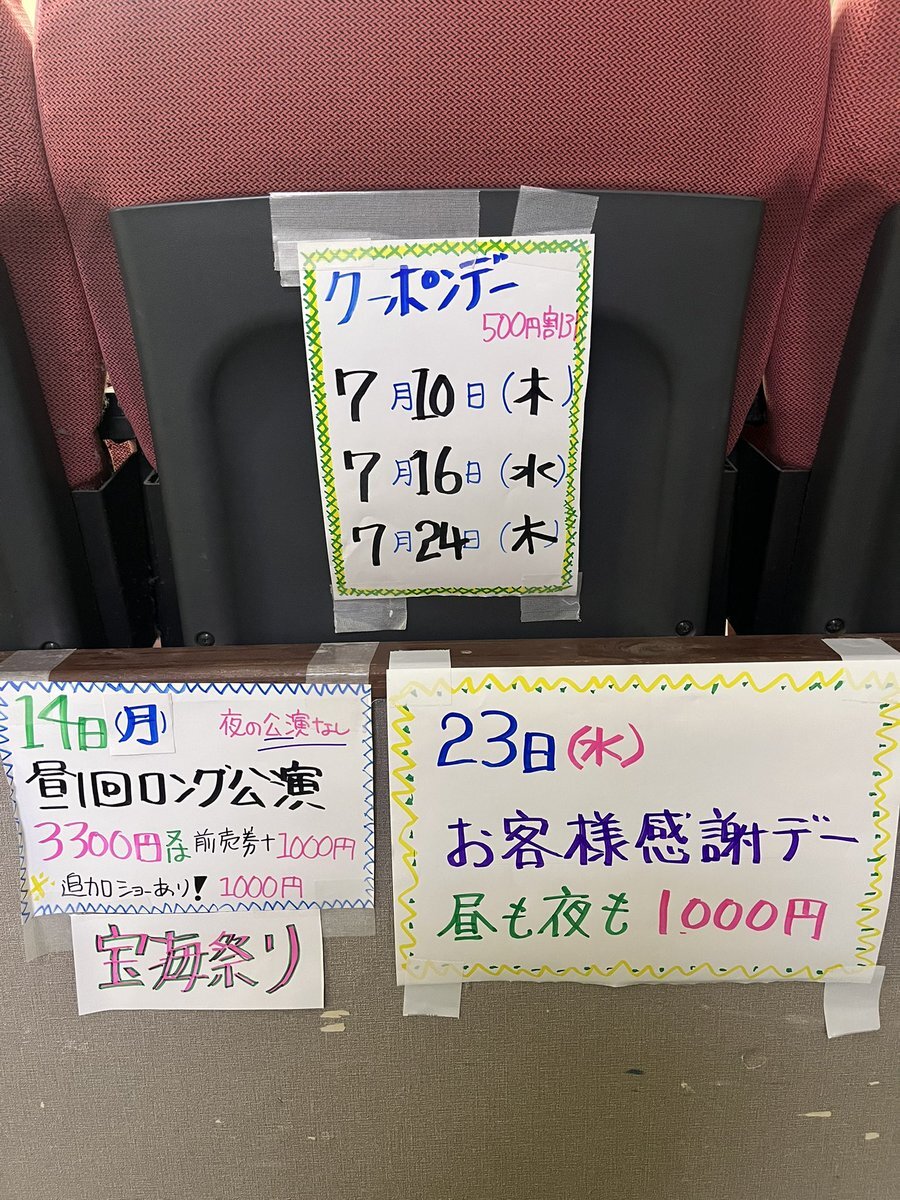 クーポンデー
500円割引
7月10日(木)
7月16日(水)
7月24日(木)
14日(月) 夜の公演なし
昼1回ロング公演
3300円又は前売券+1000円
追加ショーあり! 1000円
宝海祭り
23日(水)
お客様感謝デー
昼も夜も1000円